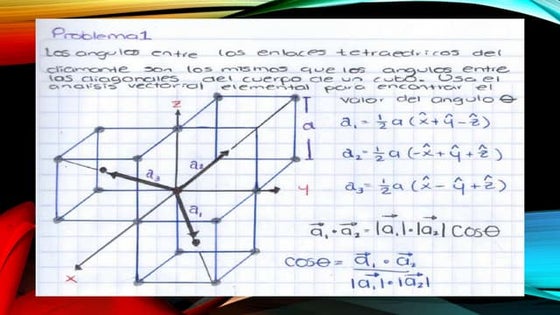 Problema 1
Los angulos entre los enlaces tetraedricos del
diamante son los mismos que los angulos entre
las diagonales del cuerpo de un cubo. Usa el
analisis vectorial elemental para encontrar el
valor del angulo θ
z
a
a₂
a₃
y
a₁
x
a₁ = ½ a (x̂ + ŷ - ẑ)
a₂ = ½ a (-x̂ + ŷ + ẑ)
a₃ = ½ a (x̂ - ŷ + ẑ)
a⃗₁ • a⃗₂ = |a⃗₁| • |a⃗₂| cosθ
cosθ = a⃗₁ • a⃗₂ / |a⃗₁| • |a⃗₂|